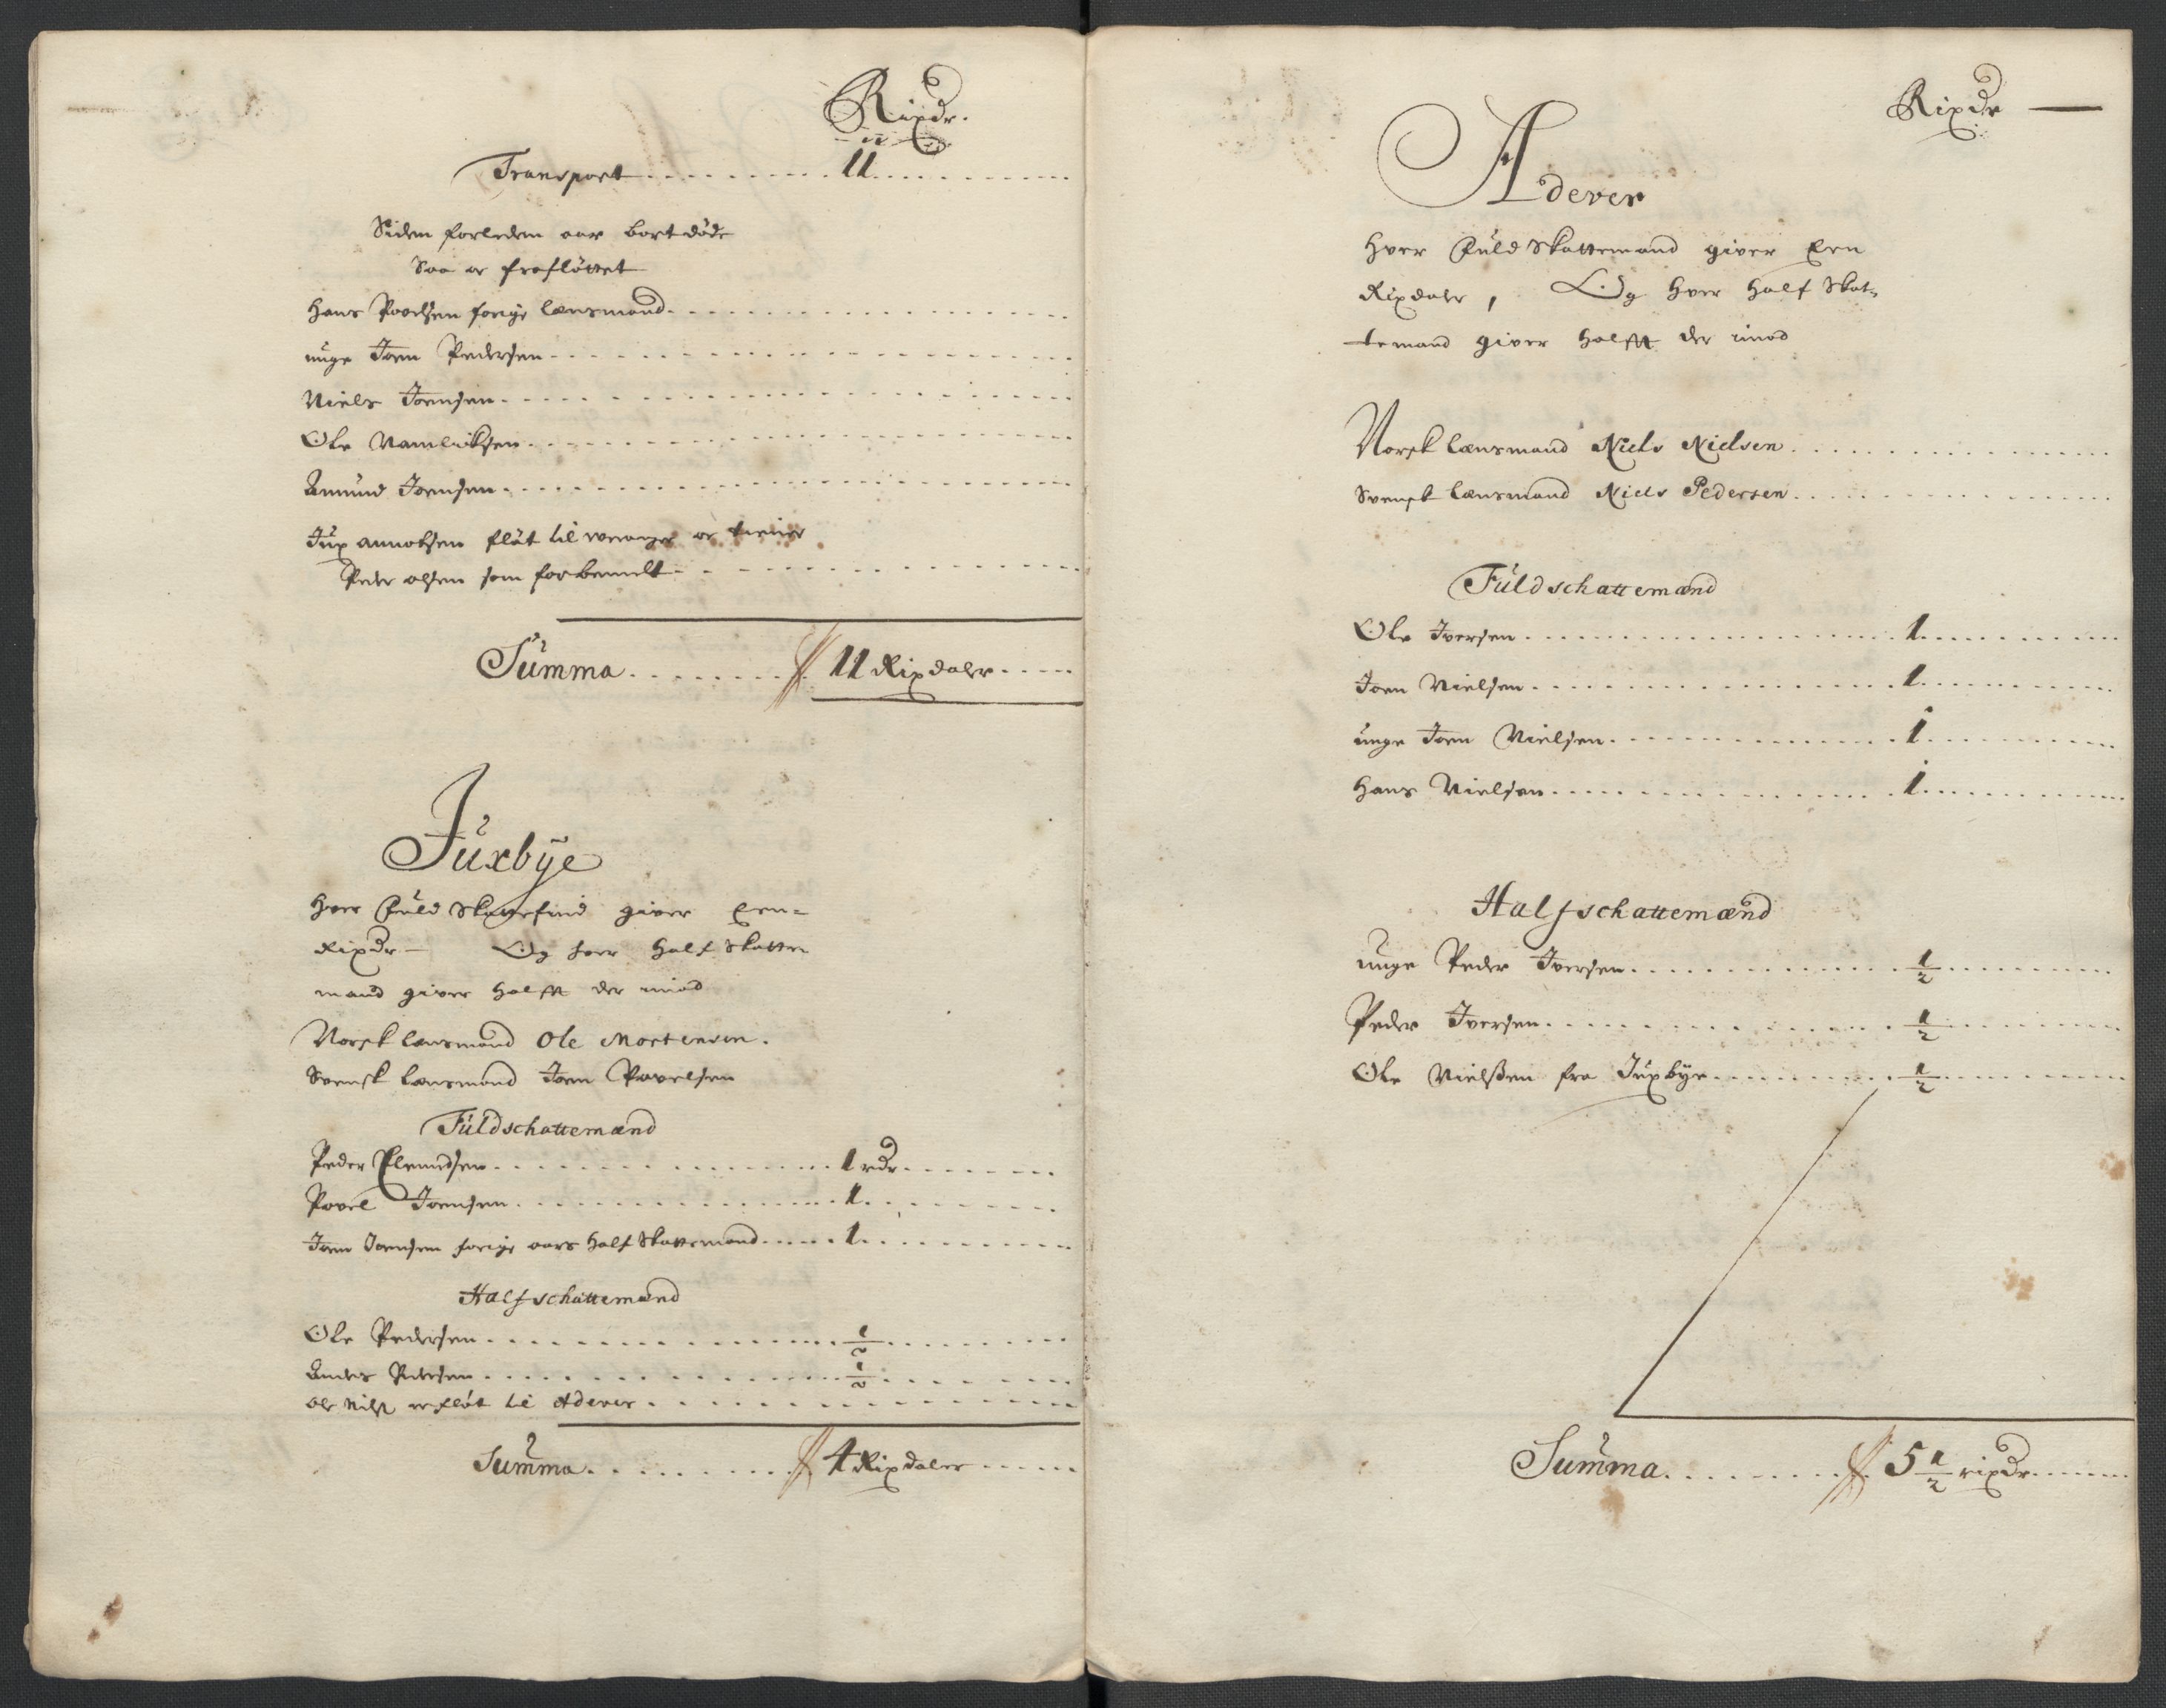 Rixdr.
Transport 11
Siden forleden aar bortdöde
Saa er frafløttet
Hans Povelsen forige Lænsmand
unge Joen Pedersen
Niels Joensen
Ole
Amund Joensen
Jux fløt til er
Peder Olsen som forbemelt
Summa 11 Rixdaler
Juxbÿe
Hver Fuld Skattefind giver Een=
Rixdr Og hver Half Skatte
mand giver Halfft der imod
Norsk Lænsmand Ole Mortensen.
Svensk Lænsmand Joen Pavelsen
Fuldschattemænd
Peder 1 rdr
Povel Joensen 1
Joen Joensen forige aars Half Skattemand 1
Halfschattemænd
Ole Pedersen 1/2
Anders Pedersen 1/2
Ole Nilß er fløt til Adever
Summa 4 Rixdaler
Rixdr
Adever
Hver Fuld Skattemand giver Een
Rixdaler, Og Hver Half Skat=
temand giver Halfft der imod
Norsk Lænsmand Niels Nielsen
Svensk Lænsmand Niels Pedersen
Fuldschattemænd
Ole Iversen 1
Joen Nielsen 1
unge Joen Nielsen 1
Hans Nielsen 1
Halfschattemænd
unge Peder Iversen 1/2
Peder Iversen 1/2
Ole Nielßen fra Juxbÿe 1/2
Summa 5 1/2 rixdr